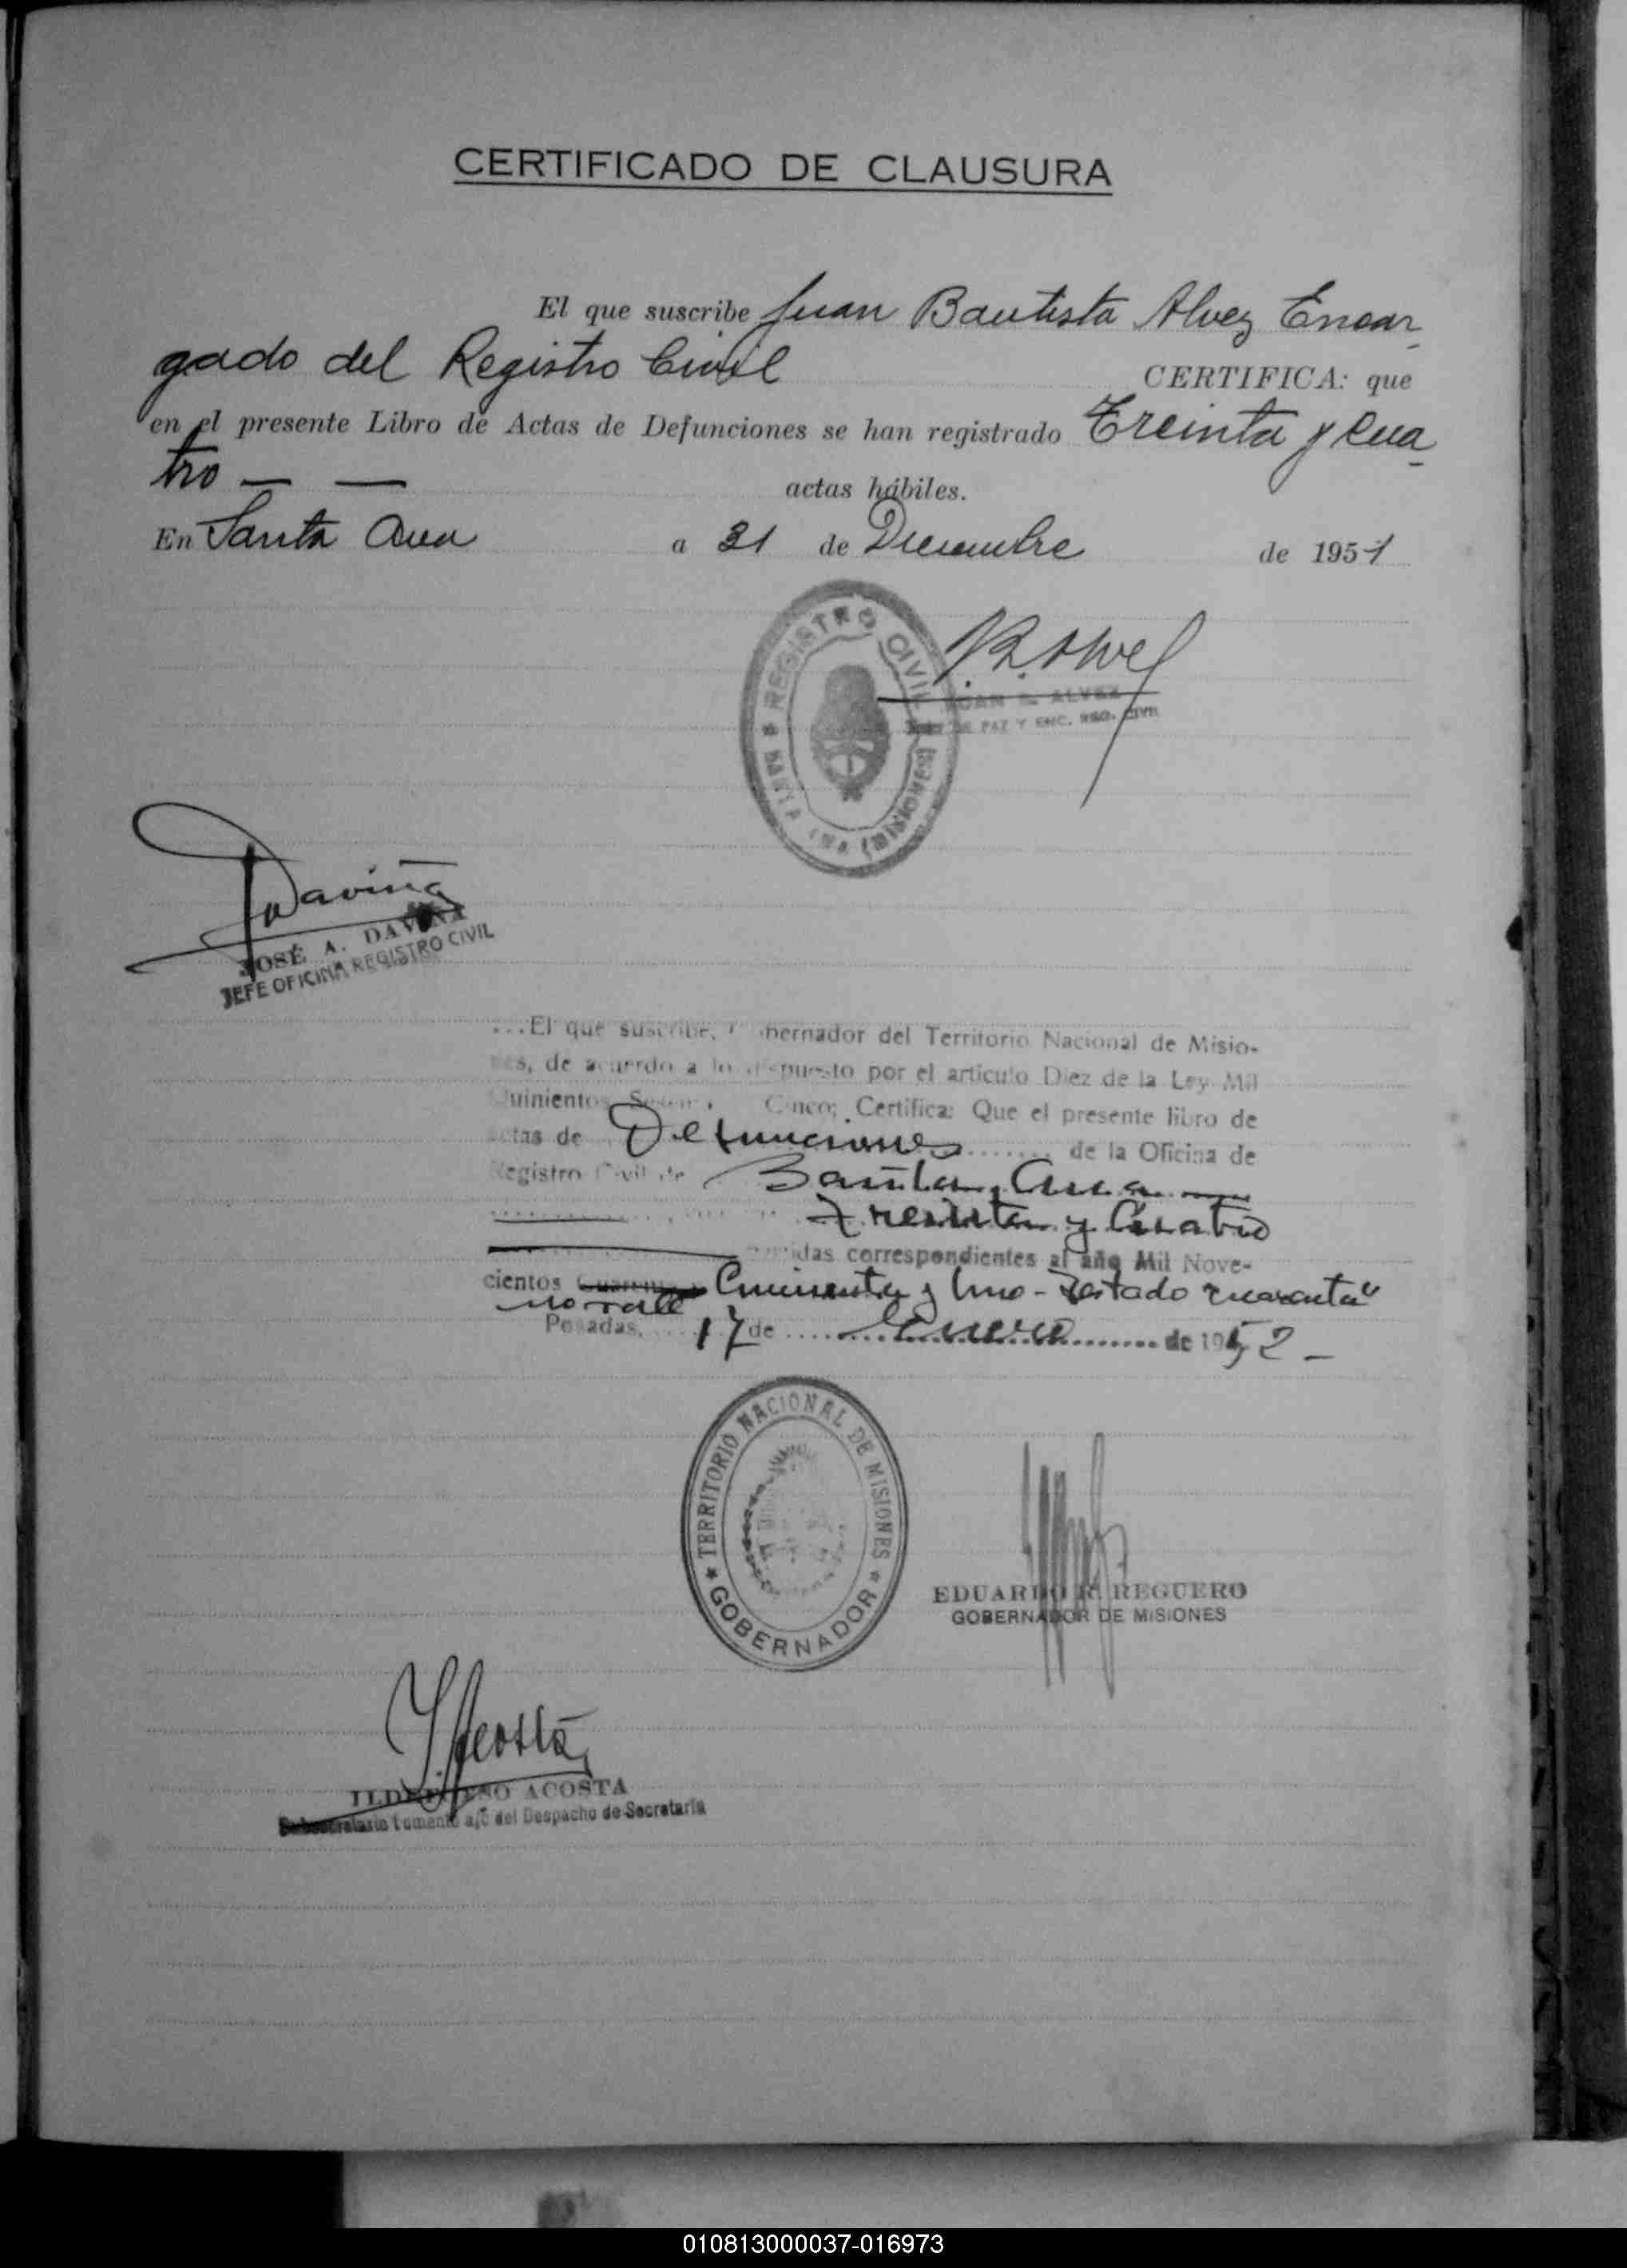 CERTIFICADO DE CLAUSURA
El que suscribe Juan Bautista Alvez Encar
gado del Registro Civil CERTIFICA: que
en el presente Libro de Actas de Defunciones se han registrado Treinta y Cua
tro — — actas hábiles.
En Santa Ana a 31 de Diciembre de 1951
REGISTRO CIVIL
SANTA ANA (MISIONES)
JUAN B. ALVEZ
DE PAZ Y ENC. REG. CIVIL
Daviña
JOSÉ A. DAVIÑA
JEFE OFICINA REGISTRO CIVIL
...El que suscribe, Gobernador del Territorio Nacional de Misio-
nes, de acuerdo a lo dispuesto por el artículo Diez de la Ley Mil
Quinientos Sesenta Cinco; Certifica: Que el presente libro de
actas de Defunciones de la Oficina de
Registro Civil de Santa Ana
Treinta y Cuatro
correspondientes al año Mil Nove-
cientos Cuarenta y Cincuenta y Uno - Testado "cuarenta"
no vale
Posadas, 17 de Enero de 1952 -
TERRITORIO NACIONAL DE MISIONES
GOBERNADOR
EDUARDO R. REGUERO
GOBERNADOR DE MISIONES
Acosta
ILDEFONSO ACOSTA
Subsecretario Fomento a/c del Despacho de Secretaría
010813000037-016973